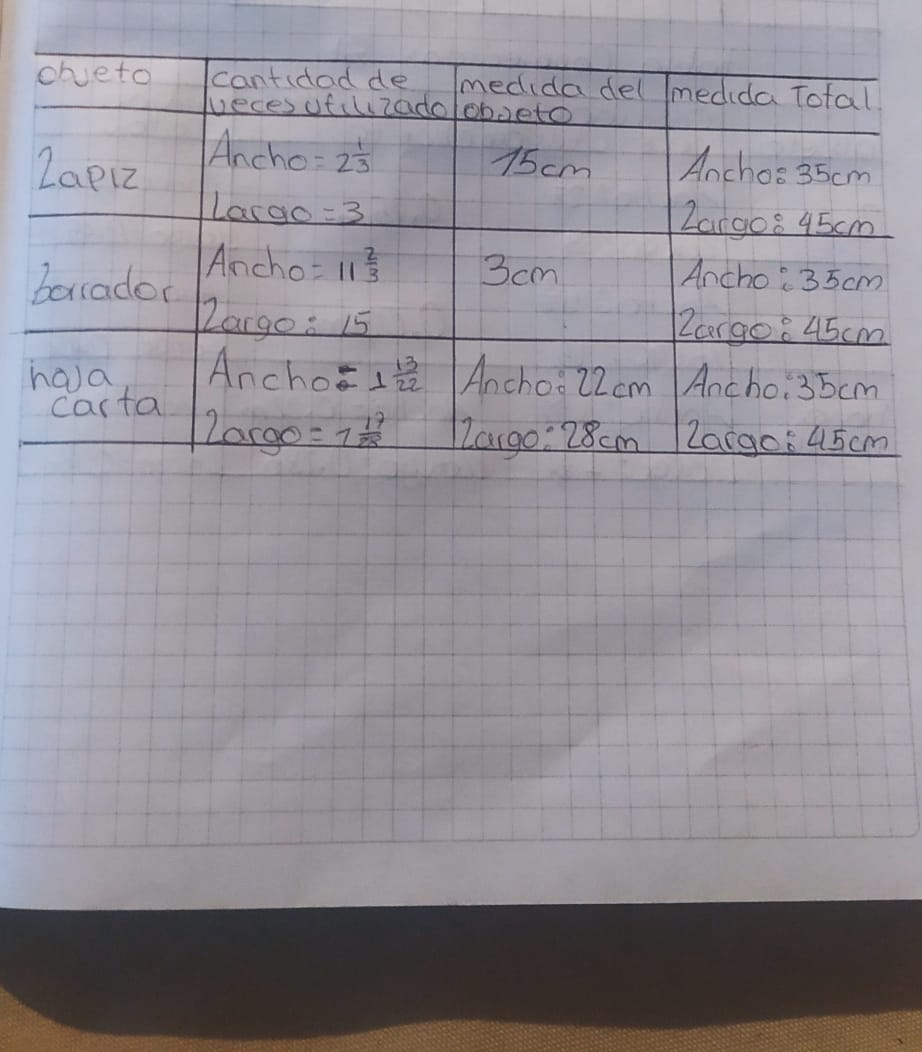 objeto cantidad de veces utilizado medida del objeto medida Total
Lapiz Ancho = 2 1/3 15cm Ancho: 35cm
Largo = 3 Largo: 45cm
borrador Ancho = 11 2/3 3cm Ancho: 35cm
Largo: 15 Largo: 45cm
hoja carta Ancho = 1 13/22 Ancho: 22cm Ancho: 35cm
Largo = 1 17/28 Largo: 28cm Largo: 45cm